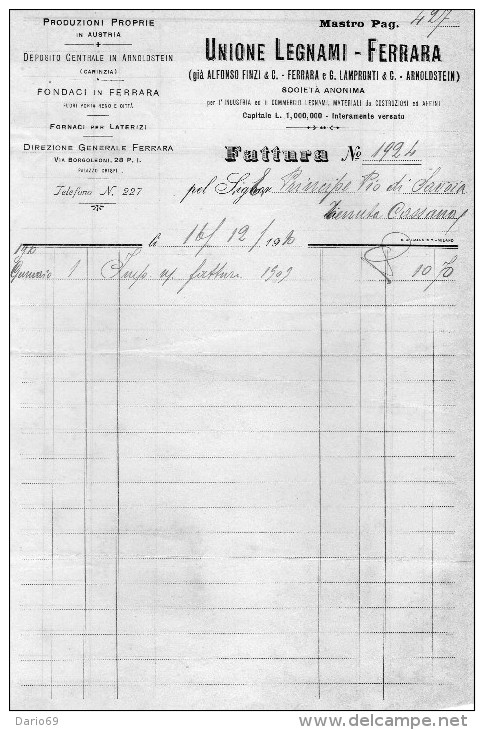 PRODUZIONI PROPRIE
IN AUSTRIA
DEPOSITO CENTRALE IN ARNOLDSTEIN
(CARINZIA)
FONDACI IN FERRARA
FUORI PORTA RENO E CITTÀ
FORNACI PER LATERIZI
DIREZIONE GENERALE FERRARA
VIA BORGOLEONI, 28 P. I.
PALAZZO CRISPI
Telefono N. 227
Mastro Pag. 427
UNIONE LEGNAMI - FERRARA
(già ALFONSO FINZI & C. - FERRARA e G. LAMPRONTI & C. - ARNOLDSTEIN)
SOCIETÀ ANONIMA
per l'INDUSTRIA ed il COMMERCIO LEGNAMI, MATERIALI da COSTRUZIONI ed AFFINI
Capitale L. 1,000,000 - Interamente versato
Fattura No 1924
pel Sig. Principe Pio di Savoia
Tenuta Cassana
li 16/12/1910
1910
Gennaio 1 Imp n/ fattura 1909 10 70
Dario69
delcampe.net